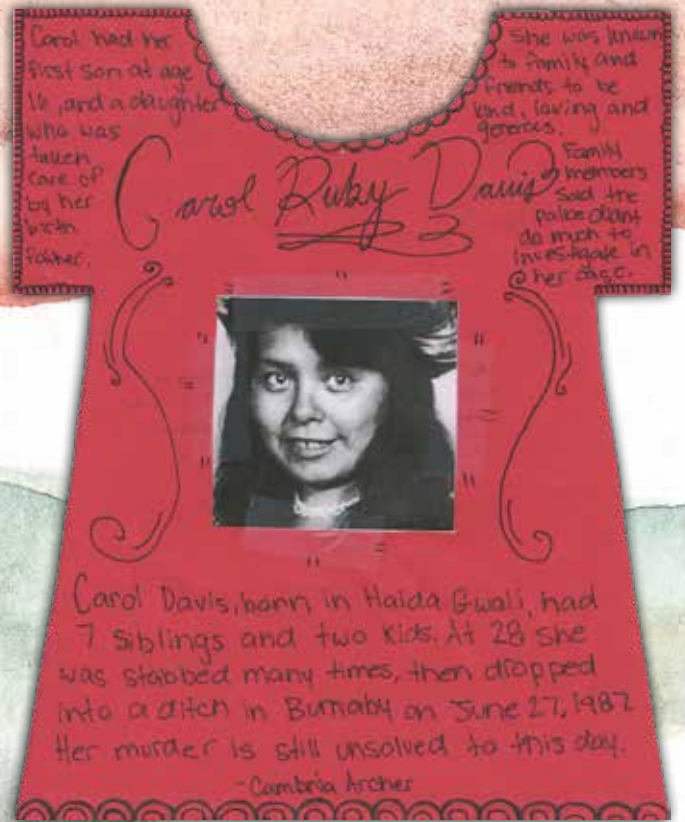 Carol had her
first son at age
16, and a daughter
who was
taken
care of
by her
birth
father.
She was known
to family and
friends to be
kind, loving and
generous.
Family
members
said the
police didnt
do much to
investigate in
her case.
Carol Ruby Davis
Carol Davis, born in Haida Gwaii, had
7 siblings and two kids. At 28 she
was stabbed many times, then dropped
into a ditch in Burnaby on June 27, 1987
Her murder is still unsolved to this day.
-Cambria Archer